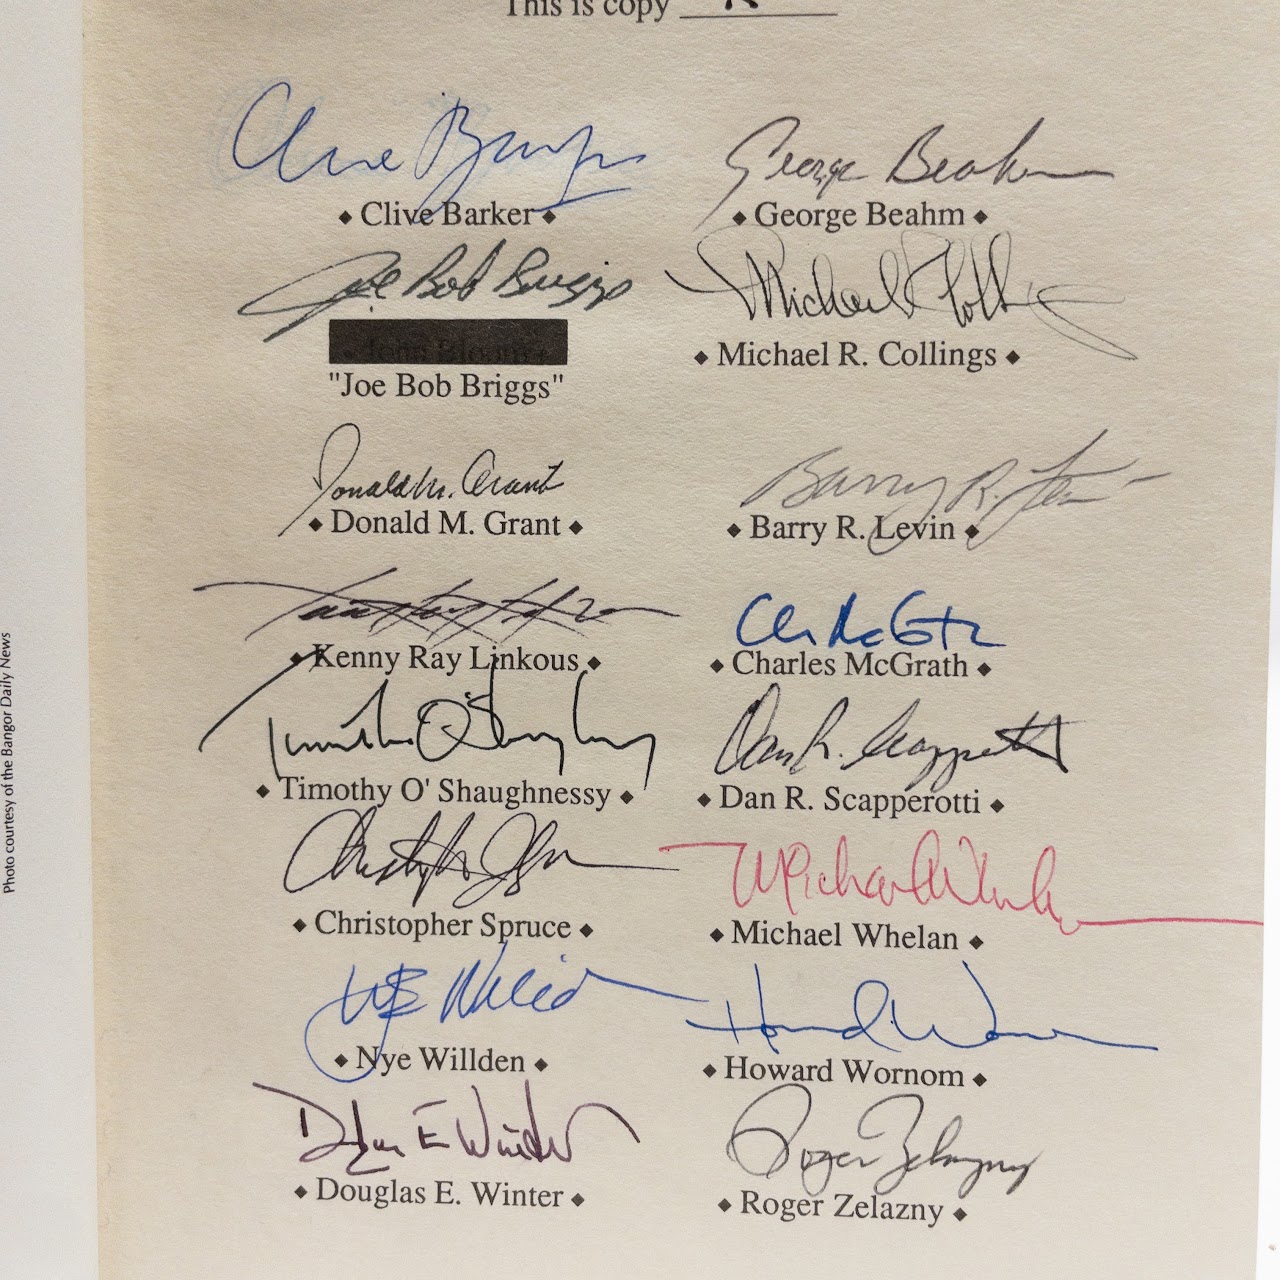 This is copy
Clive Barker
George Beahm
◆ Clive Barker ◆
◆ George Beahm ◆
Joe Bob Briggs
Michael Collings
◆ John Bloom ◆
"Joe Bob Briggs"
◆ Michael R. Collings ◆
Donald M. Grant
Barry R. Levin
◆ Donald M. Grant ◆
◆ Barry R. Levin ◆
◆ Kenny Ray Linkous ◆
Chs McGrath
◆ Charles McGrath ◆
Timothy O'Shaughnessy
Dan R. Scapperotti
◆ Timothy O' Shaughnessy ◆
◆ Dan R. Scapperotti ◆
Christopher Spruce
Michael Whelan
◆ Christopher Spruce ◆
◆ Michael Whelan ◆
Howard Wornom
◆ Nye Willden ◆
◆ Howard Wornom ◆
Douglas E Winter
Roger Zelazny
◆ Douglas E. Winter ◆
◆ Roger Zelazny ◆
Photo courtesy of the Bangor Daily News